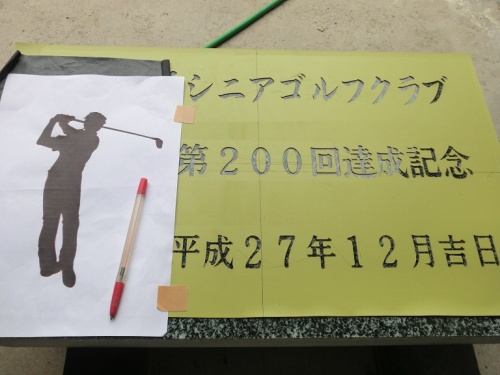 シニアゴルフクラブ
第２００回達成記念
平成２７年１２月吉日